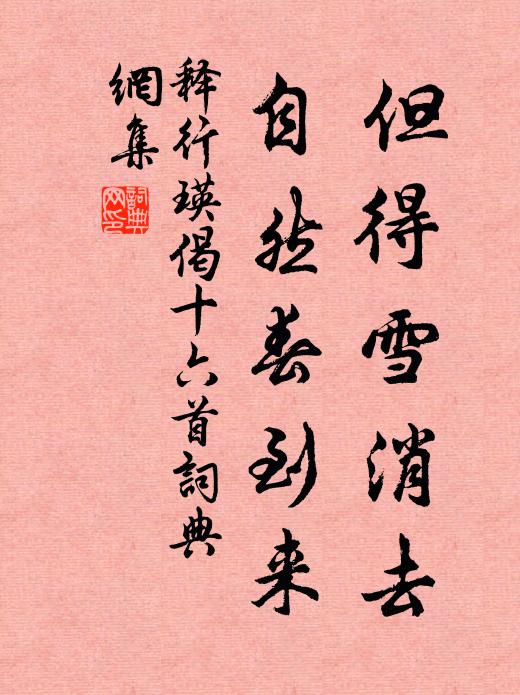 但得雪消去
自然春到来
释行瑛偈十六首詞典
網集
詞典網印